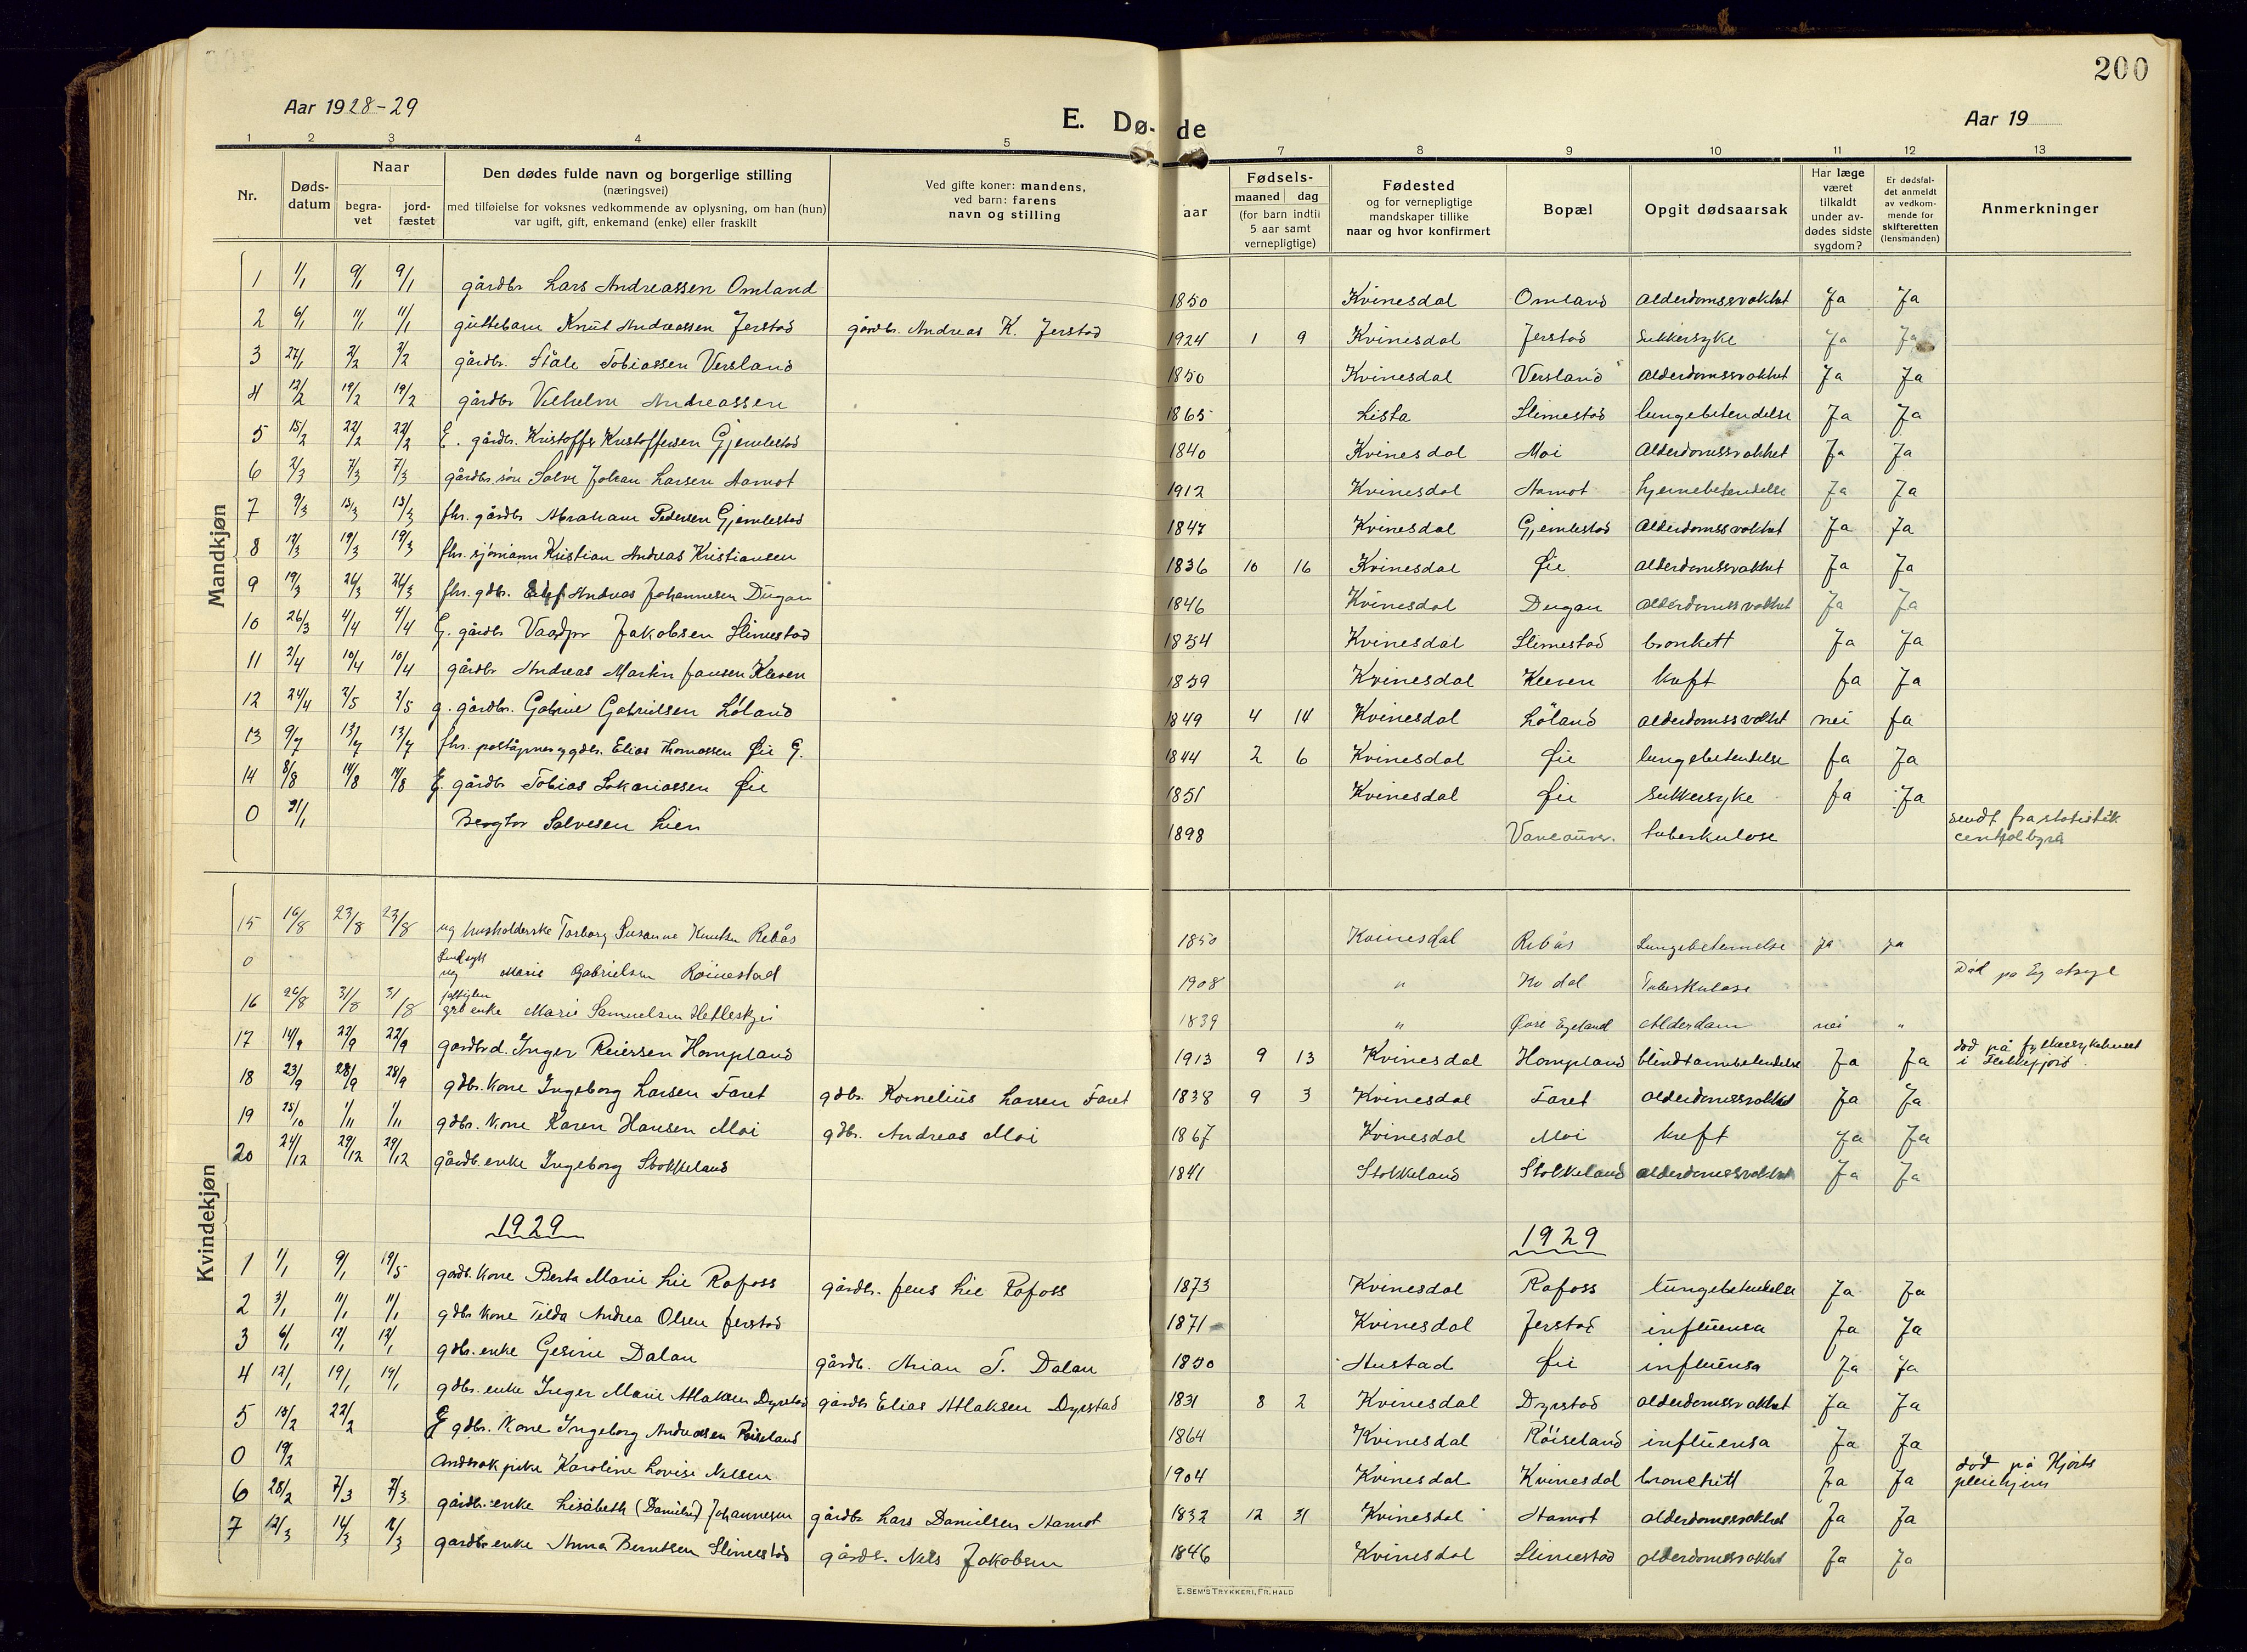 200
Aar 1928-29
E. Dø- de
Aar 19
1 2 3 4 5 7 8 9 10 11 12 13
Nr.
Døds-
datum
Naar
begra-
vet
jord-
fæstet
Den dødes fulde navn og borgerlige stilling
(næringsvei)
med tilføielse for voksnes vedkommende av oplysning, om han (hun)
var ugift, gift, enkemand (enke) eller fraskilt
Ved gifte koner: mandens,
ved barn: farens
navn og stilling
aar
Fødsels-
maaned dag
(for barn indtil
5 aar samt
vernepligtige)
Fødested
og for vernepligtige
mandskaper tillike
naar og hvor konfirmert
Bopæl
Opgit dødsaarsak
Har læge
været
tilkaldt
under av-
dødes sidste
sygdom?
Er dødsfal-
det anmeldt
av vedkom-
mende for
skifteretten
(lensmanden)
Anmerkninger
Mandkjøn
1 1/1 9/1 9/1 gårdbr Lars Andreassen Omland 1850 Kvinesdal Omland alderdomssvakhet Ja Ja
2 6/1 11/1 11/1 guttebarn Knut Andreassen Jerstad gårdbr. Andreas K. Jerstad 1924 1 9 Kvinesdal Jerstad Sukkersyke Ja Ja
3 27/1 2/2 2/2 gårdbr. Ståle Tobiassen Versland 1850 Kvinesdal Versland alderdomssvakhet Ja Ja
4 12/2 19/2 19/2 gårdbr Vilhelm Andreassen 1865 Lista Slimestad lungebetendelse Ja Ja
5 15/2 22/2 22/2 E. gårdbr. Kristoffer Kristoffersen Gjemlestad 1840 Kvinesdal Moi Alderdomssvakhet Ja Ja
6 2/3 7/3 7/3 gårdbr. søn Salve Johan Larsen Aamot 1912 Kvinesdal Aamot hjernebetendelse Ja Ja
7 9/3 13/3 13/3 fhr. gårdbr Abraham Pedersen Gjemlestad 1847 Kvinesdal Gjemlestad Alderdomssvakhet Ja Ja
8 14/3 19/3 19/3 fhr. sjømann Kristian Andreas Kristiansen 1836 10 16 Kvinesdal Øie alderdomssvakhet Ja Ja
9 19/3 26/3 26/3 fhr. gdbr. Andreas Johannesen Dugan 1846 Kvinesdal Dugan alderdomssvakhet Ja Ja
10 26/3 4/4 4/4 G. gårdbr Jakobsen Slimestad 1854 Kvinesdal Slimestad bronkett Ja Ja
11 2/4 10/4 10/4 gårdbr Andreas Martin Jansen Kleven 1859 Kvinesdal Kleven kræft Ja Ja
12 24/4 2/5 2/5 g. gårdbr. Gabriel Gabrielsen Løland 1849 4 14 Kvinesdal Løland alderdomssvakhet nei Ja
13 9/7 13/7 13/7 fhr. poståpner og gdbr. Elias Thomassen Øie G. 1844 2 6 Kvinesdal Øie lungebetendelse Ja Ja
14 8/8 14/8 14/8 E. gårdbr Tobias Sakariassen Øie 1851 Kvinesdal Øie Sukkersyke Ja Ja
0 21/1 Bergtor Salvesen Lien 1898 tuberkulose sendt fra statistik
centralbyrå
Kvindekjøn
15 16/8 23/8 23/8 ug husholderske Torborg Susanne Knutsen Rebås 1850 Kvinesdal Rebås Lungebetennelse ja ja
0 Sindsyk
ug Marie Gabrielsen Røinestad 1908 " Kv dal Tuberkulose Død på Eg Asyl
16 26/8 31/8 31/8 grd enke Marie Samuelsen Hetleskjei 1839 " Øvre Egeland Alderdom nei "
17 14/9 22/9 22/9 gårdbr d. Inger Reiersen Hompland 1913 9 13 Kvinesdal Hompland blindtarmbetendelse Ja Ja død på fylkessykehuset
i Flekkefjord.
18 23/9 28/9 28/9 gdbr. kone Ingeborg Larsen Faret gdbr. Kornelius Larsen Faret 1838 9 3 Kvinesdal Faret alderdomssvakhet Ja Ja
19 25/10 1/11 1/11 gdbr. kone Karen Hansen Moi gdbr. Andreas Moi 1867 Kvinesdal Moi kreft Ja Ja
20 24/12 29/12 29/12 gårdb. enke Ingeborg Stokkeland 1841 Stokkeland Stokkeland alderdomssvakhet Ja Ja
1929 1929
1 1/1 9/1 19/5 gårdb. kone Berta Marie Lie Rafoss gårdbr. Jens Lie Rafoss 1873 Kvinesdal Rafoss lungebetendelse Ja Ja
2 3/1 11/1 11/1 gdbr kone Tilda Andrea Olsen Jerstad 1871 Kvinesdal Jerstad influensa Ja Ja
3 6/1 12/1 12/1 gdbr. enke Gesine Dalan gårdb. Arian T. Dalan 1850 Austad Øie influensa Ja Ja
4 12/1 19/1 19/1 gdbr. enke Inger Marie Atlaksen Dyrstad gårdbr Elias Atlaksen Dyrstad 1831 8 2 Kvinesdal Dyrstad alderdomssvakhet Ja Ja
5 13/2 22/2 G gdbr. kone Ingeborg Andreassen Røiseland 1864 Kvinesdal Røiseland influensa Ja Ja
0 19/2 Karoline Lovise Nilsen 1904 Kvinesdal Kvinesdal bronchitt Ja Ja død på Hjorts
pleiehjem
6 28/2 7/3 7/3 gårdbr. enke Lisabeth (Danielsen) Johannesen gårdbr Lars Danielsen Aamot 1832 12 31 Kvinesdal Aamot alderdomssvakhet Ja Ja
7 12/3 16/3 gårdbr enke Anna Berntsen Slimestad gårdbr. Nils Jakobsen 1846 Kvinesdal Slimestad alderdomssvakhet Ja Ja
E. SEM'S TRYKKERI, FR. HALD